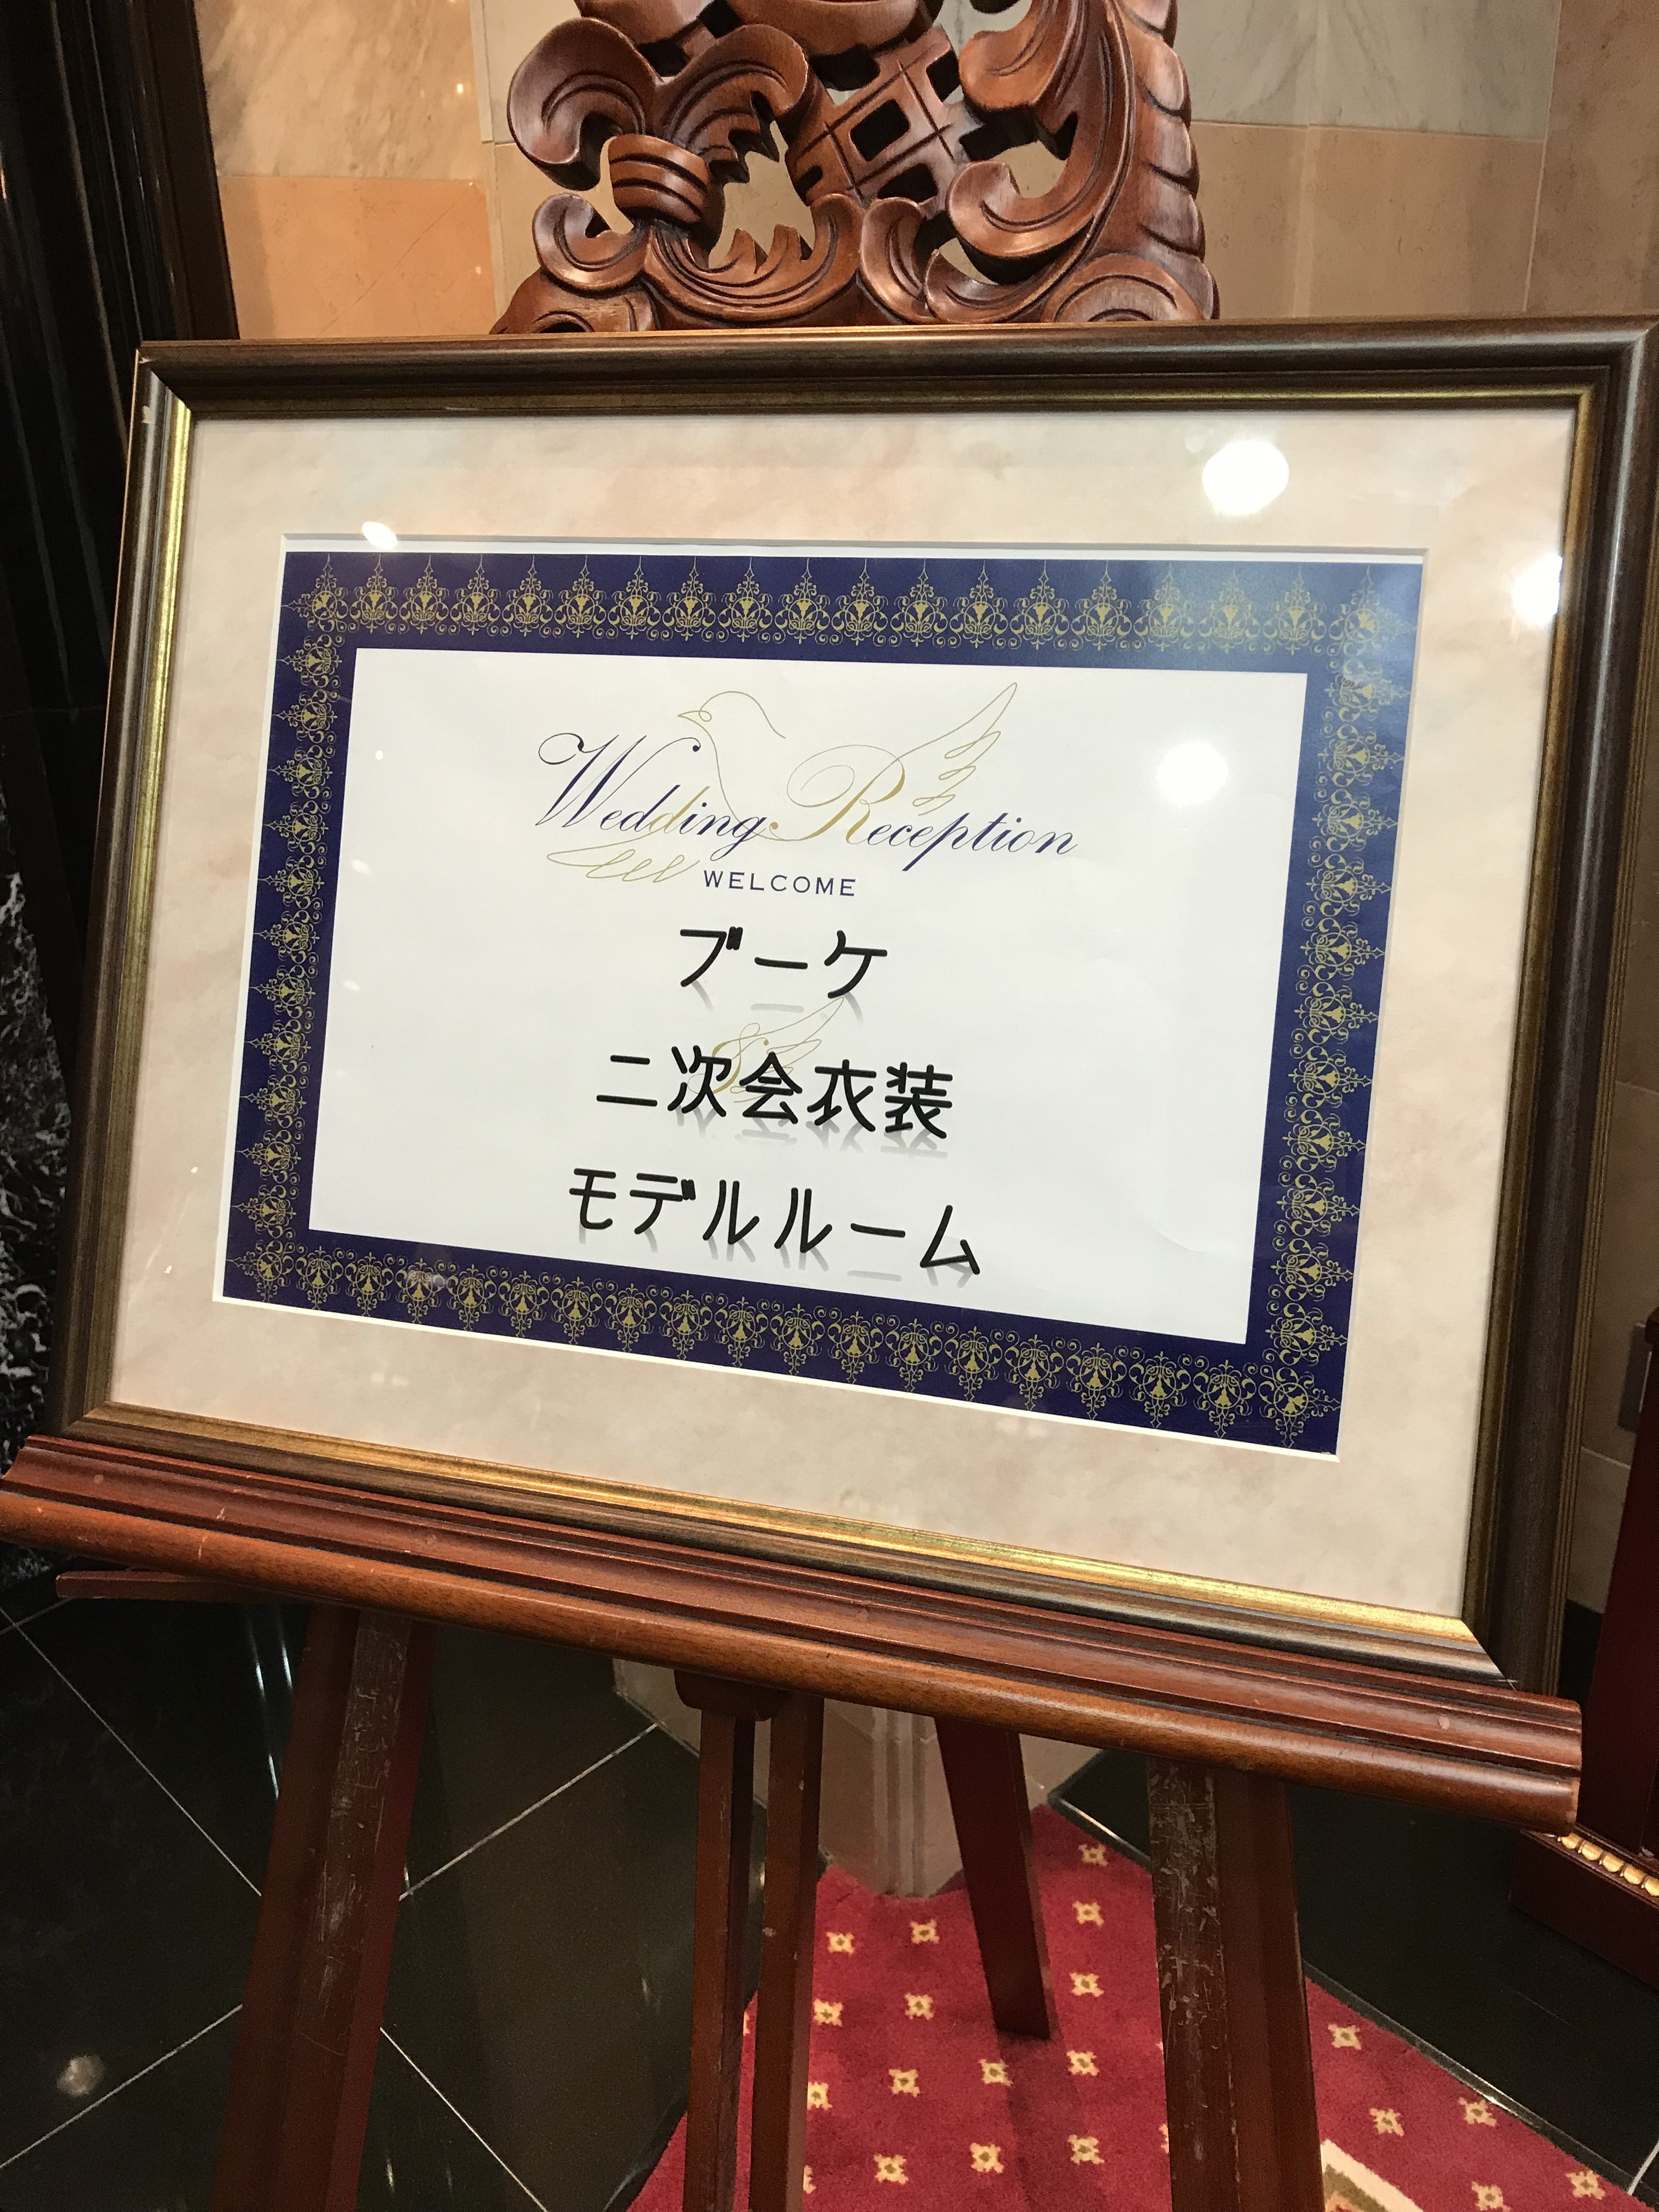 Wedding Reception
WELCOME
ブーケ
二次会衣装
モデルルーム